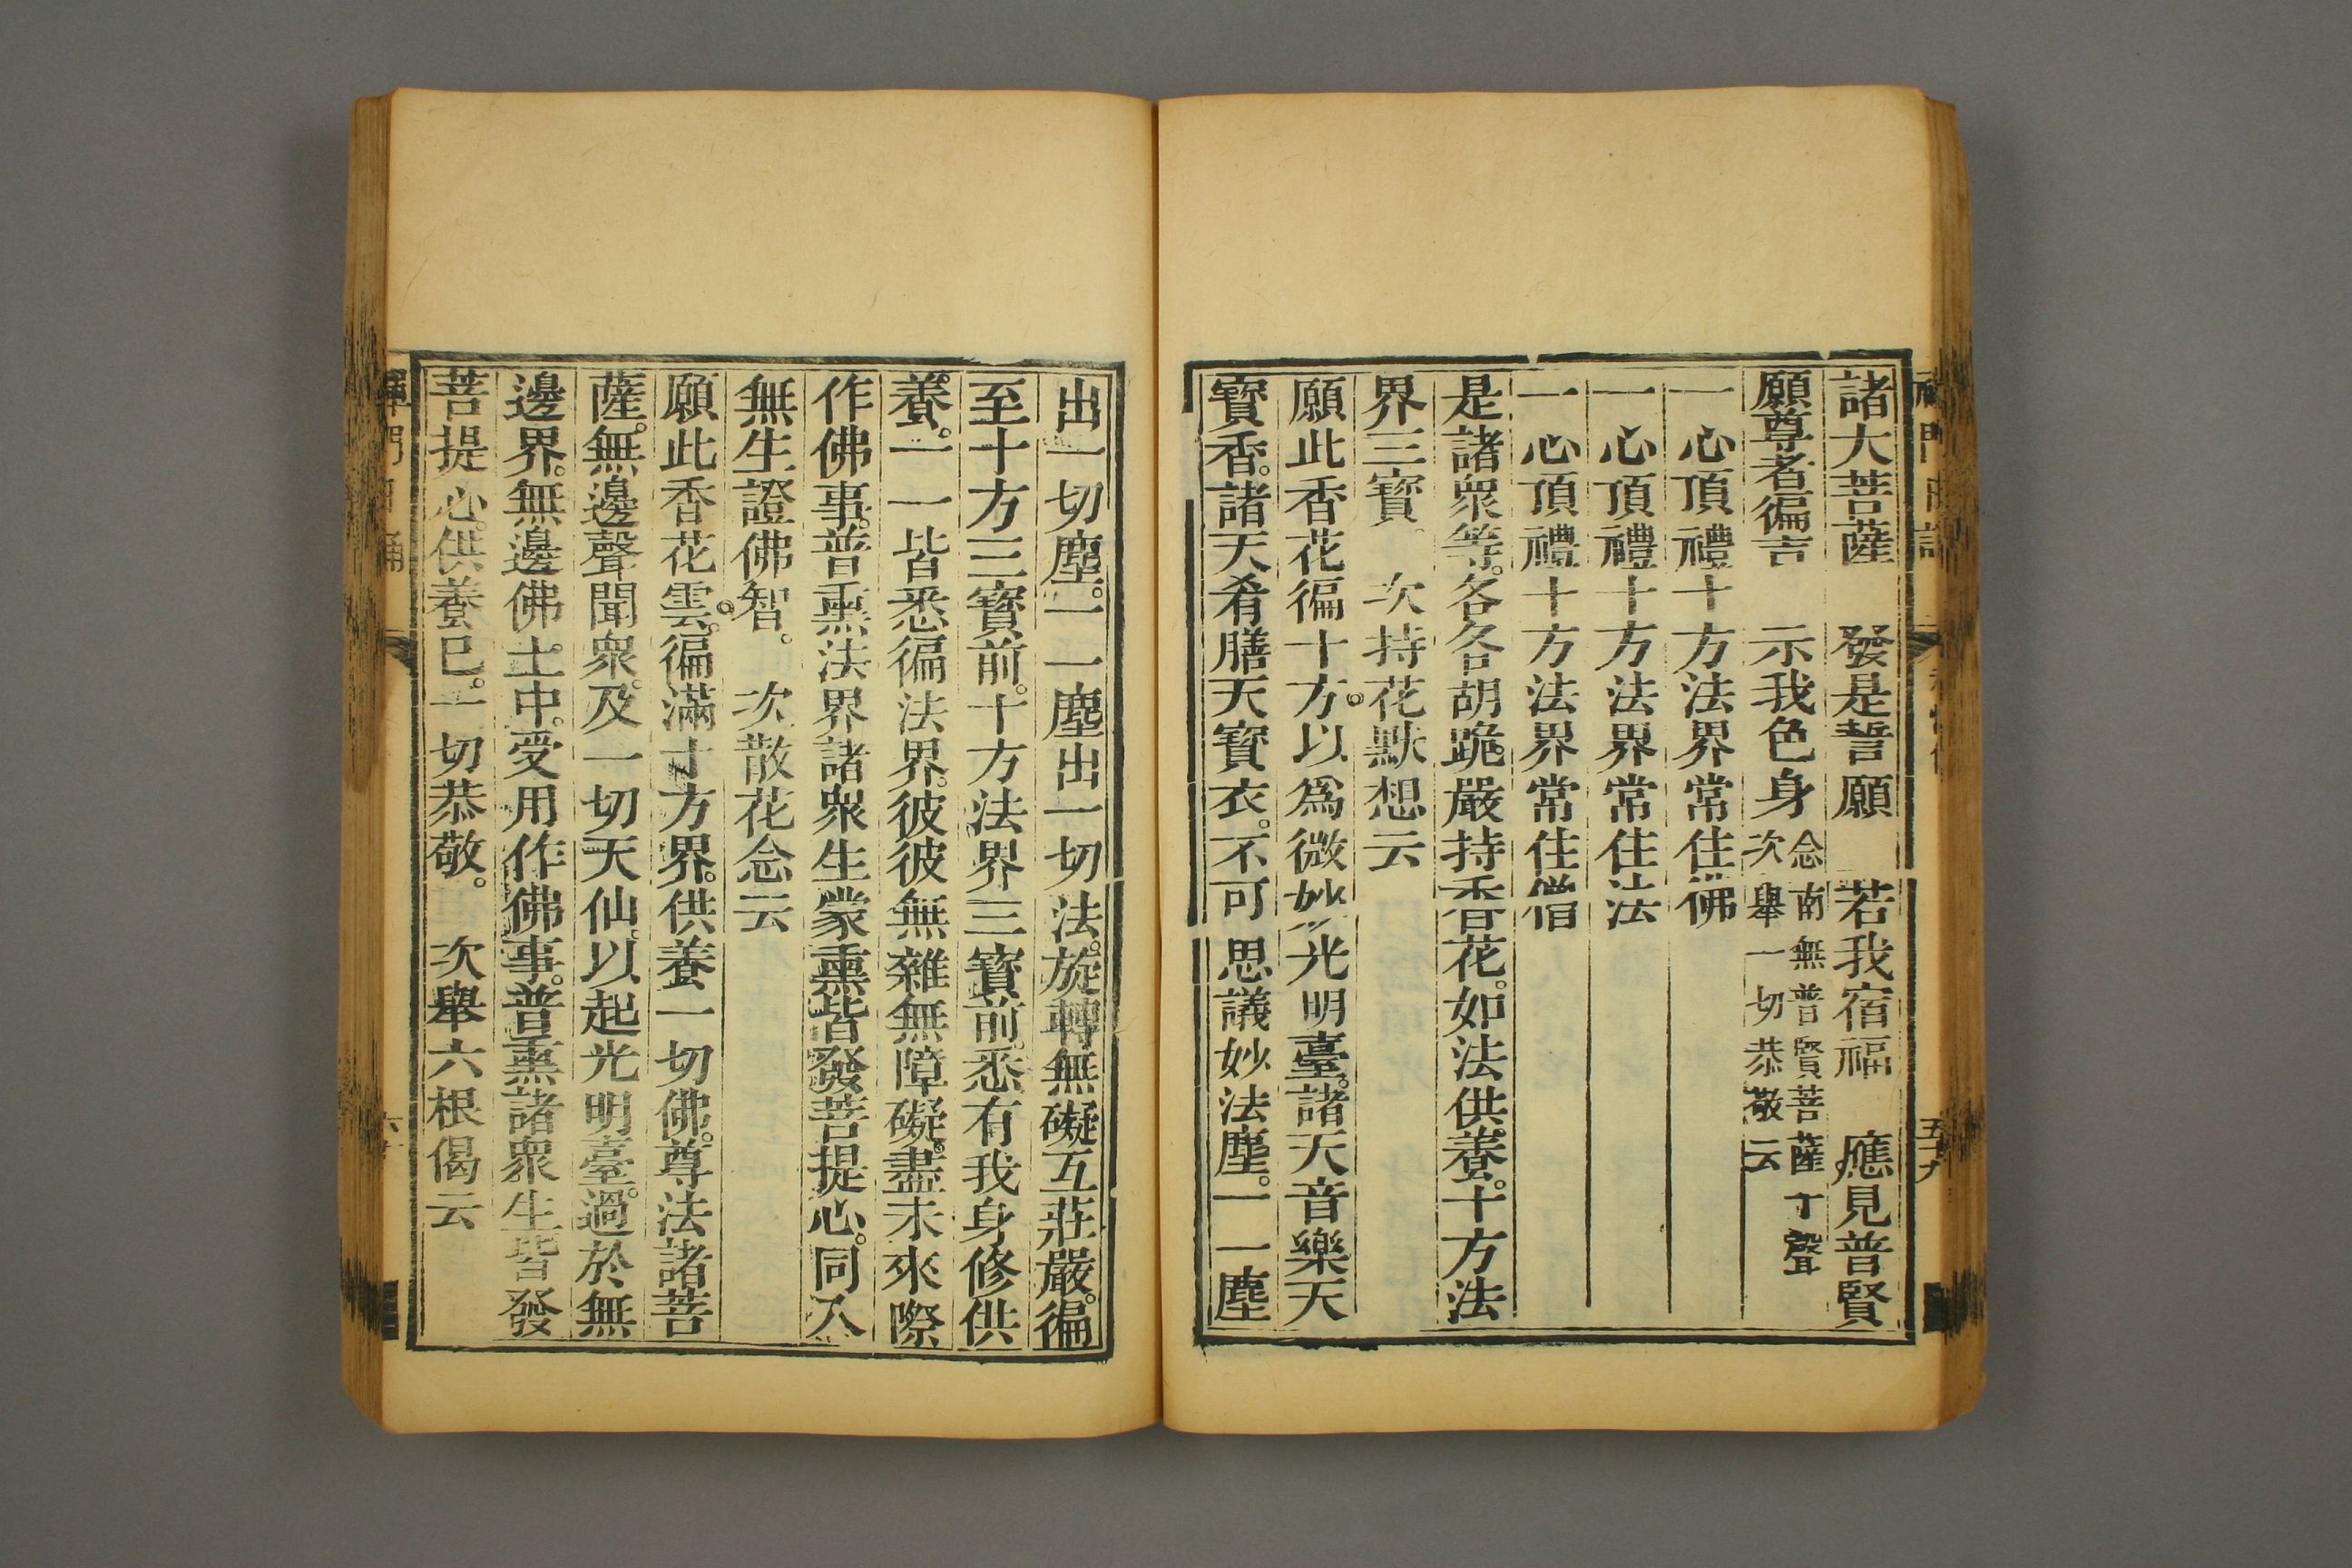 諸大菩薩　發是誓願　若我宿福　應見普賢
願尊者徧吉　示我色身念南無普賢菩薩十聲
次舉一切恭敬云
一心頂禮十方法界常住佛
一心頂禮十方法界常住法
一心頂禮十方法界常住僧
是諸衆等。各各胡跪。嚴持香花。如法供養。十方法
界三寶。　次持花默想云
願此香花徧十方。以爲微妙光明臺。諸天音樂天
寶香。諸天肴膳天寶衣。不可思議妙法塵。一一塵
五十九
出一切塵。一一塵出一切法。旋轉無礙互莊嚴。徧
至十方三寶前。十方法界三寶前。悉有我身修供
養。一一皆悉徧法界。彼彼無雜無障礙。盡未來際
作佛事。普熏法界諸衆生。蒙熏皆發菩提心。同入
無生證佛智。　次散花念云
願此香花雲。徧滿十方界。供養一切佛。尊法諸菩
薩。無邊聲聞衆。及一切天仙。以起光明臺。過於無
邊界。無邊佛土中。受用作佛事。普熏諸衆生皆發
菩提心。供養已。一切恭敬。　次舉六根偈云
禪門日誦